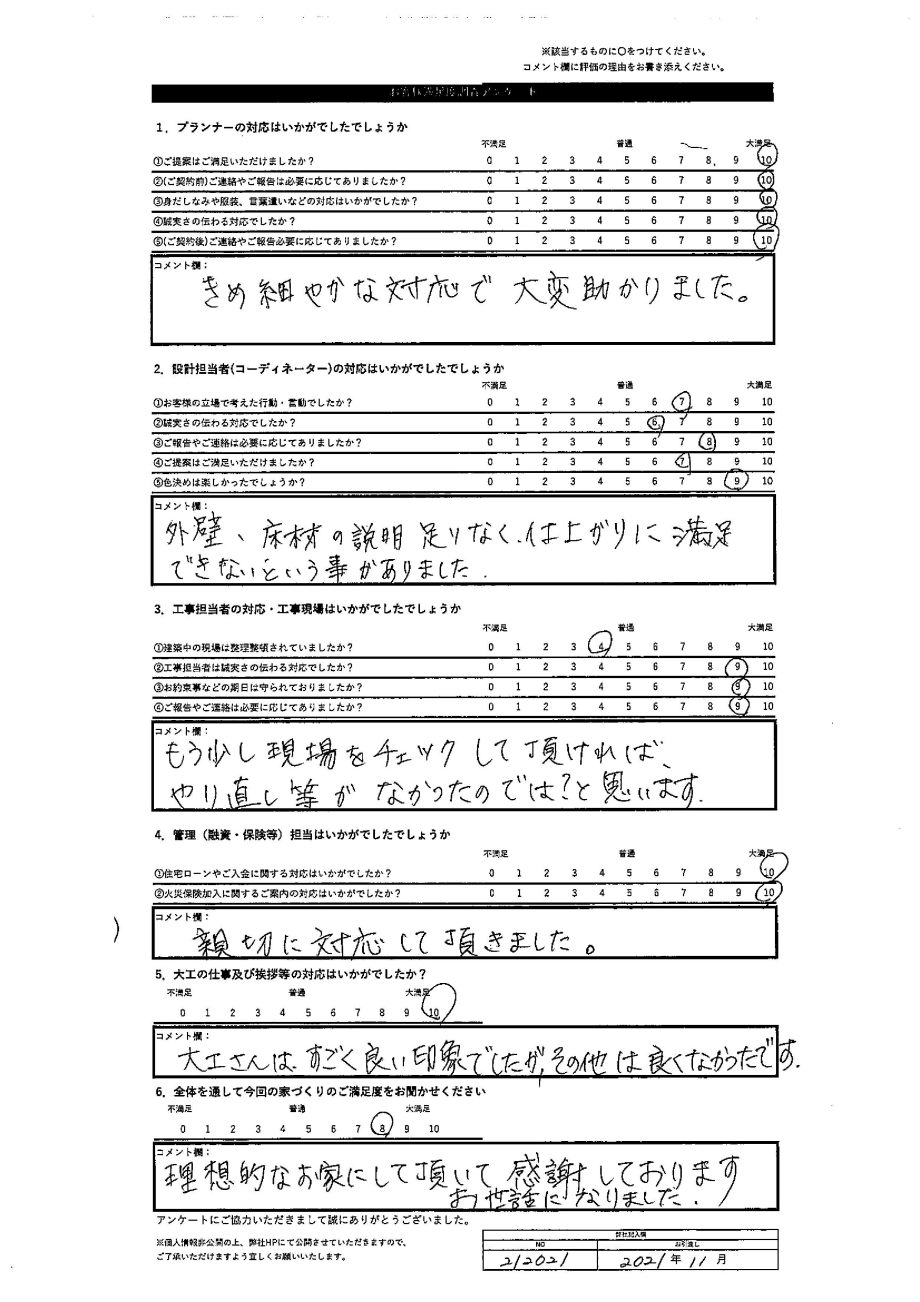 ※該当するものに〇をつけてください。
コメント欄に評価の理由をお書き添えください。
お客様満足度調査アンケート
1. プランナーの対応はいかがでしたでしょうか
不満足 普通 大満足
①ご提案はご満足いただけましたか？ 0 1 2 3 4 5 6 7 8 9 10
②(ご契約前)ご連絡やご報告は必要に応じてありましたか？ 0 1 2 3 4 5 6 7 8 9 10
③身だしなみや服装、言葉遣いなどの対応はいかがでしたか？ 0 1 2 3 4 5 6 7 8 9 10
④誠実さの伝わる対応でしたか？ 0 1 2 3 4 5 6 7 8 9 10
⑤(ご契約後)ご連絡やご報告必要に応じてありましたか？ 0 1 2 3 4 5 6 7 8 9 10
コメント欄：
きめ細やかな対応で大変助かりました。
2. 設計担当者(コーディネーター)の対応はいかがでしたでしょうか
不満足 普通 大満足
①お客様の立場で考えた行動・言動でしたか？ 0 1 2 3 4 5 6 7 8 9 10
②誠実さの伝わる対応でしたか？ 0 1 2 3 4 5 6 7 8 9 10
③ご報告やご連絡は必要に応じてありましたか？ 0 1 2 3 4 5 6 7 8 9 10
④ご提案はご満足いただけましたか？ 0 1 2 3 4 5 6 7 8 9 10
⑤色決めは楽しかったでしょうか？ 0 1 2 3 4 5 6 7 8 9 10
コメント欄：
外壁、床材の説明足りなく、仕上がりに満足
できないという事がありました.
3. 工事担当者の対応・工事現場はいかがでしたでしょうか
不満足 普通 大満足
①建築中の現場は整理整頓されていましたか？ 0 1 2 3 4 5 6 7 8 9 10
②工事担当者は誠実さの伝わる対応でしたか？ 0 1 2 3 4 5 6 7 8 9 10
③お約束事などの期日は守られておりましたか？ 0 1 2 3 4 5 6 7 8 9 10
④ご報告やご連絡は必要に応じてありましたか？ 0 1 2 3 4 5 6 7 8 9 10
コメント欄：
もう少し現場をチェックして頂ければ、
やり直し等がなかったのでは?と思います.
4. 管理（融資・保険等）担当はいかがでしたでしょうか
不満足 普通 大満足
①住宅ローンやご入金に関する対応はいかがでしたか？ 0 1 2 3 4 5 6 7 8 9 10
②火災保険加入に関するご案内の対応はいかがでしたか？ 0 1 2 3 4 5 6 7 8 9 10
コメント欄：
親切に対応して頂きました。
5. 大工の仕事及び挨拶等の対応はいかがでしたか？
不満足 普通 大満足
0 1 2 3 4 5 6 7 8 9 10
コメント欄：
大工さんは、すごく良い印象でしたが、その他は良くなかったです.
6. 全体を通して今回の家づくりのご満足度をお聞かせください
不満足 普通 大満足
0 1 2 3 4 5 6 7 8 9 10
コメント欄：
理想的なお家にして頂いて感謝しております
お世話になりました.
アンケートにご協力いただきまして誠にありがとうございました。
※個人情報非公開の上、弊社HPにて公開させていただきますので、
ご了承いただけますよう宜しくお願いいたします。
弊社記入欄
NO お引渡し
212021 2021年11月